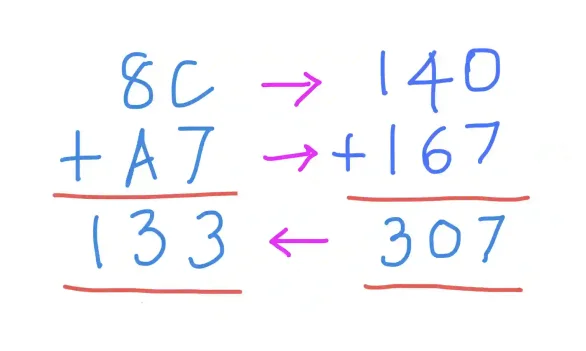 8C → 140
+ A7 → + 167
133 ← 307